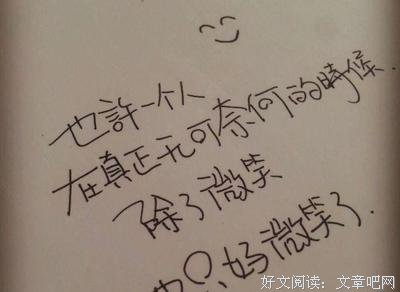 也許一个人
在真正无可奈何的時候.
除了微笑
也只好微笑了.
好文阅读：文章吧网